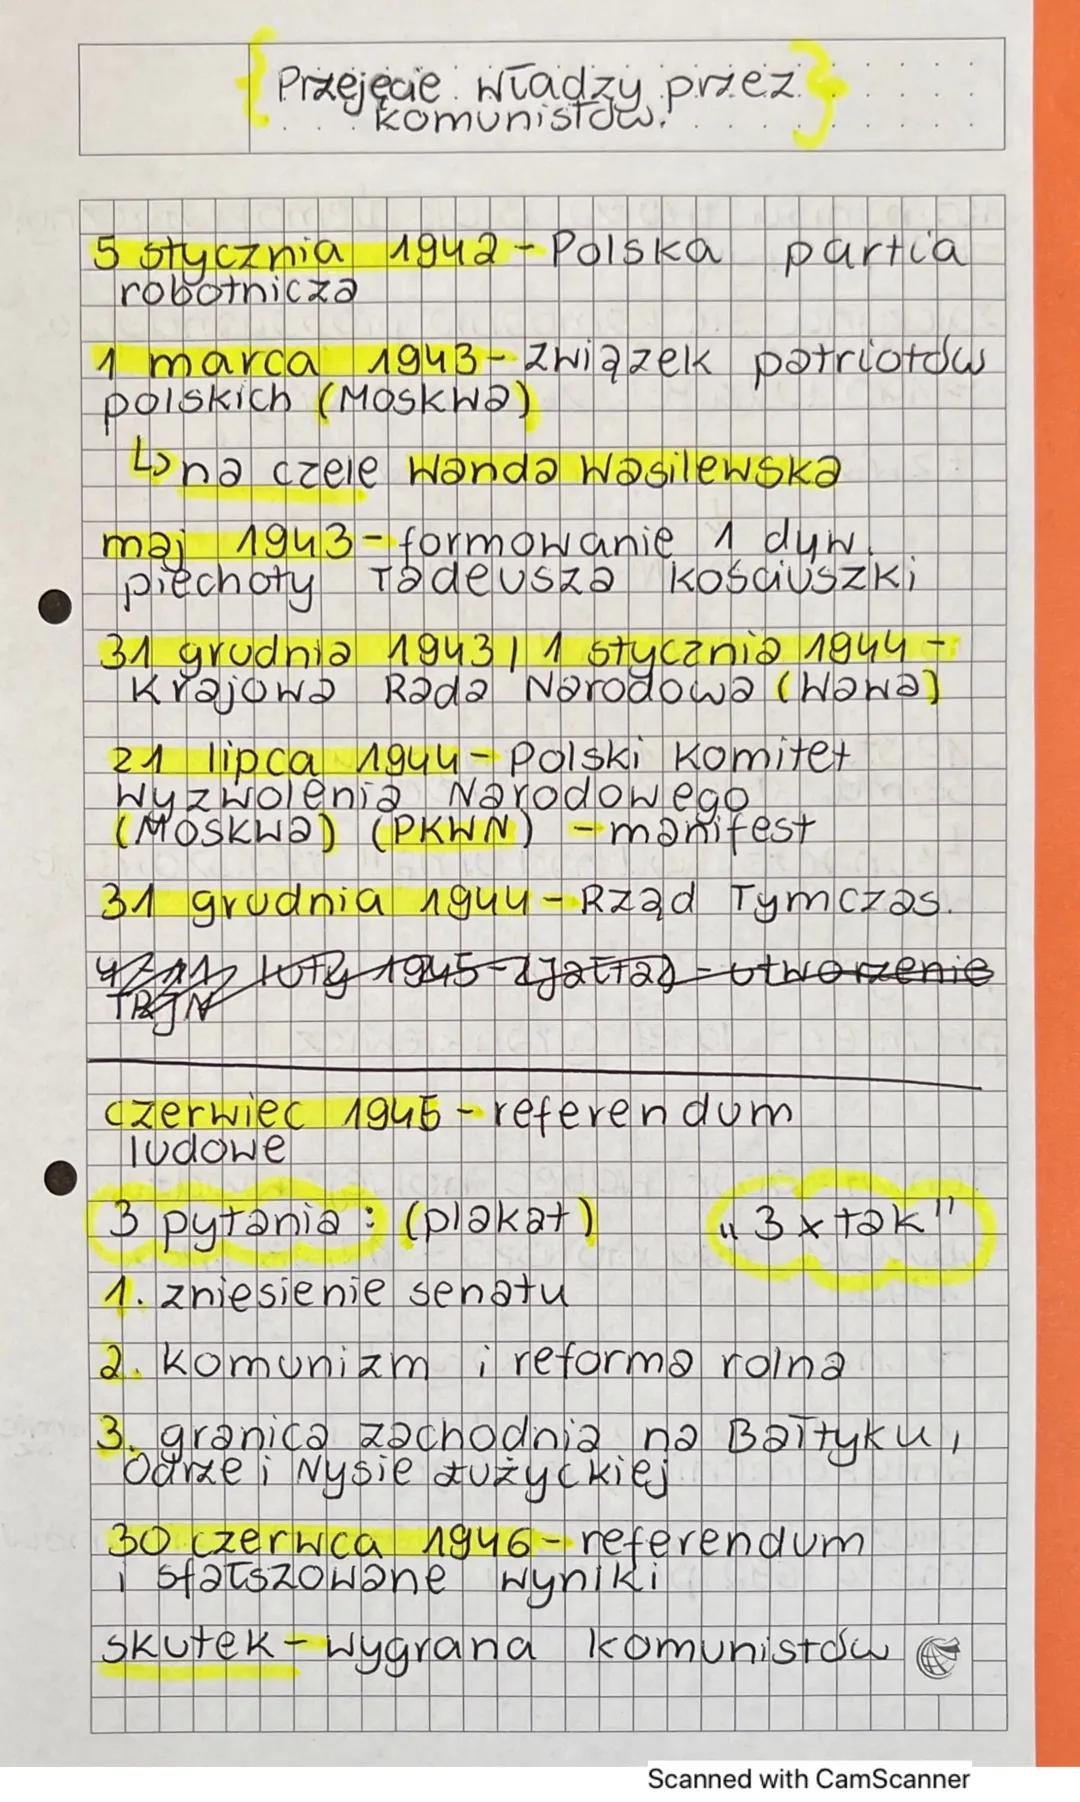 Przejęcie władzy przez
komunistów.
5 stycznia 1942 - Polska partia
robotnicza
1 marca 1943 - związek patriotów
polskich (Moskwa)
↳ na czele Wanda Wasilewska
maj 1943 - formowanie 1 dyw.
piechoty Tadeusza Kościuszki
31 grudnia 1943 / 1 stycznia 1944 -
Krajowa Rada Narodowa (Wawa)
21 lipca 1944 - Polski Komitet
Wyzwolenia Narodowego
(Moskwa) (PKWN) - manifest
31 grudnia 1944 - Rząd Tymczas.
luty 1945 - (Jałta) - utworzenie
TRJN
czerwiec 1946 - referendum
ludowe
3 pytania: (plakat) „3 x tak"
1. zniesienie senatu
2. komunizm i reforma rolna
3. granica zachodnia na Bałtyku,
Odrze i Nysie Łużyckiej
30 czerwca 1946 - referendum
i sfałszowane wyniki
skutek - wygrana komunistów
Scanned with CamScanner